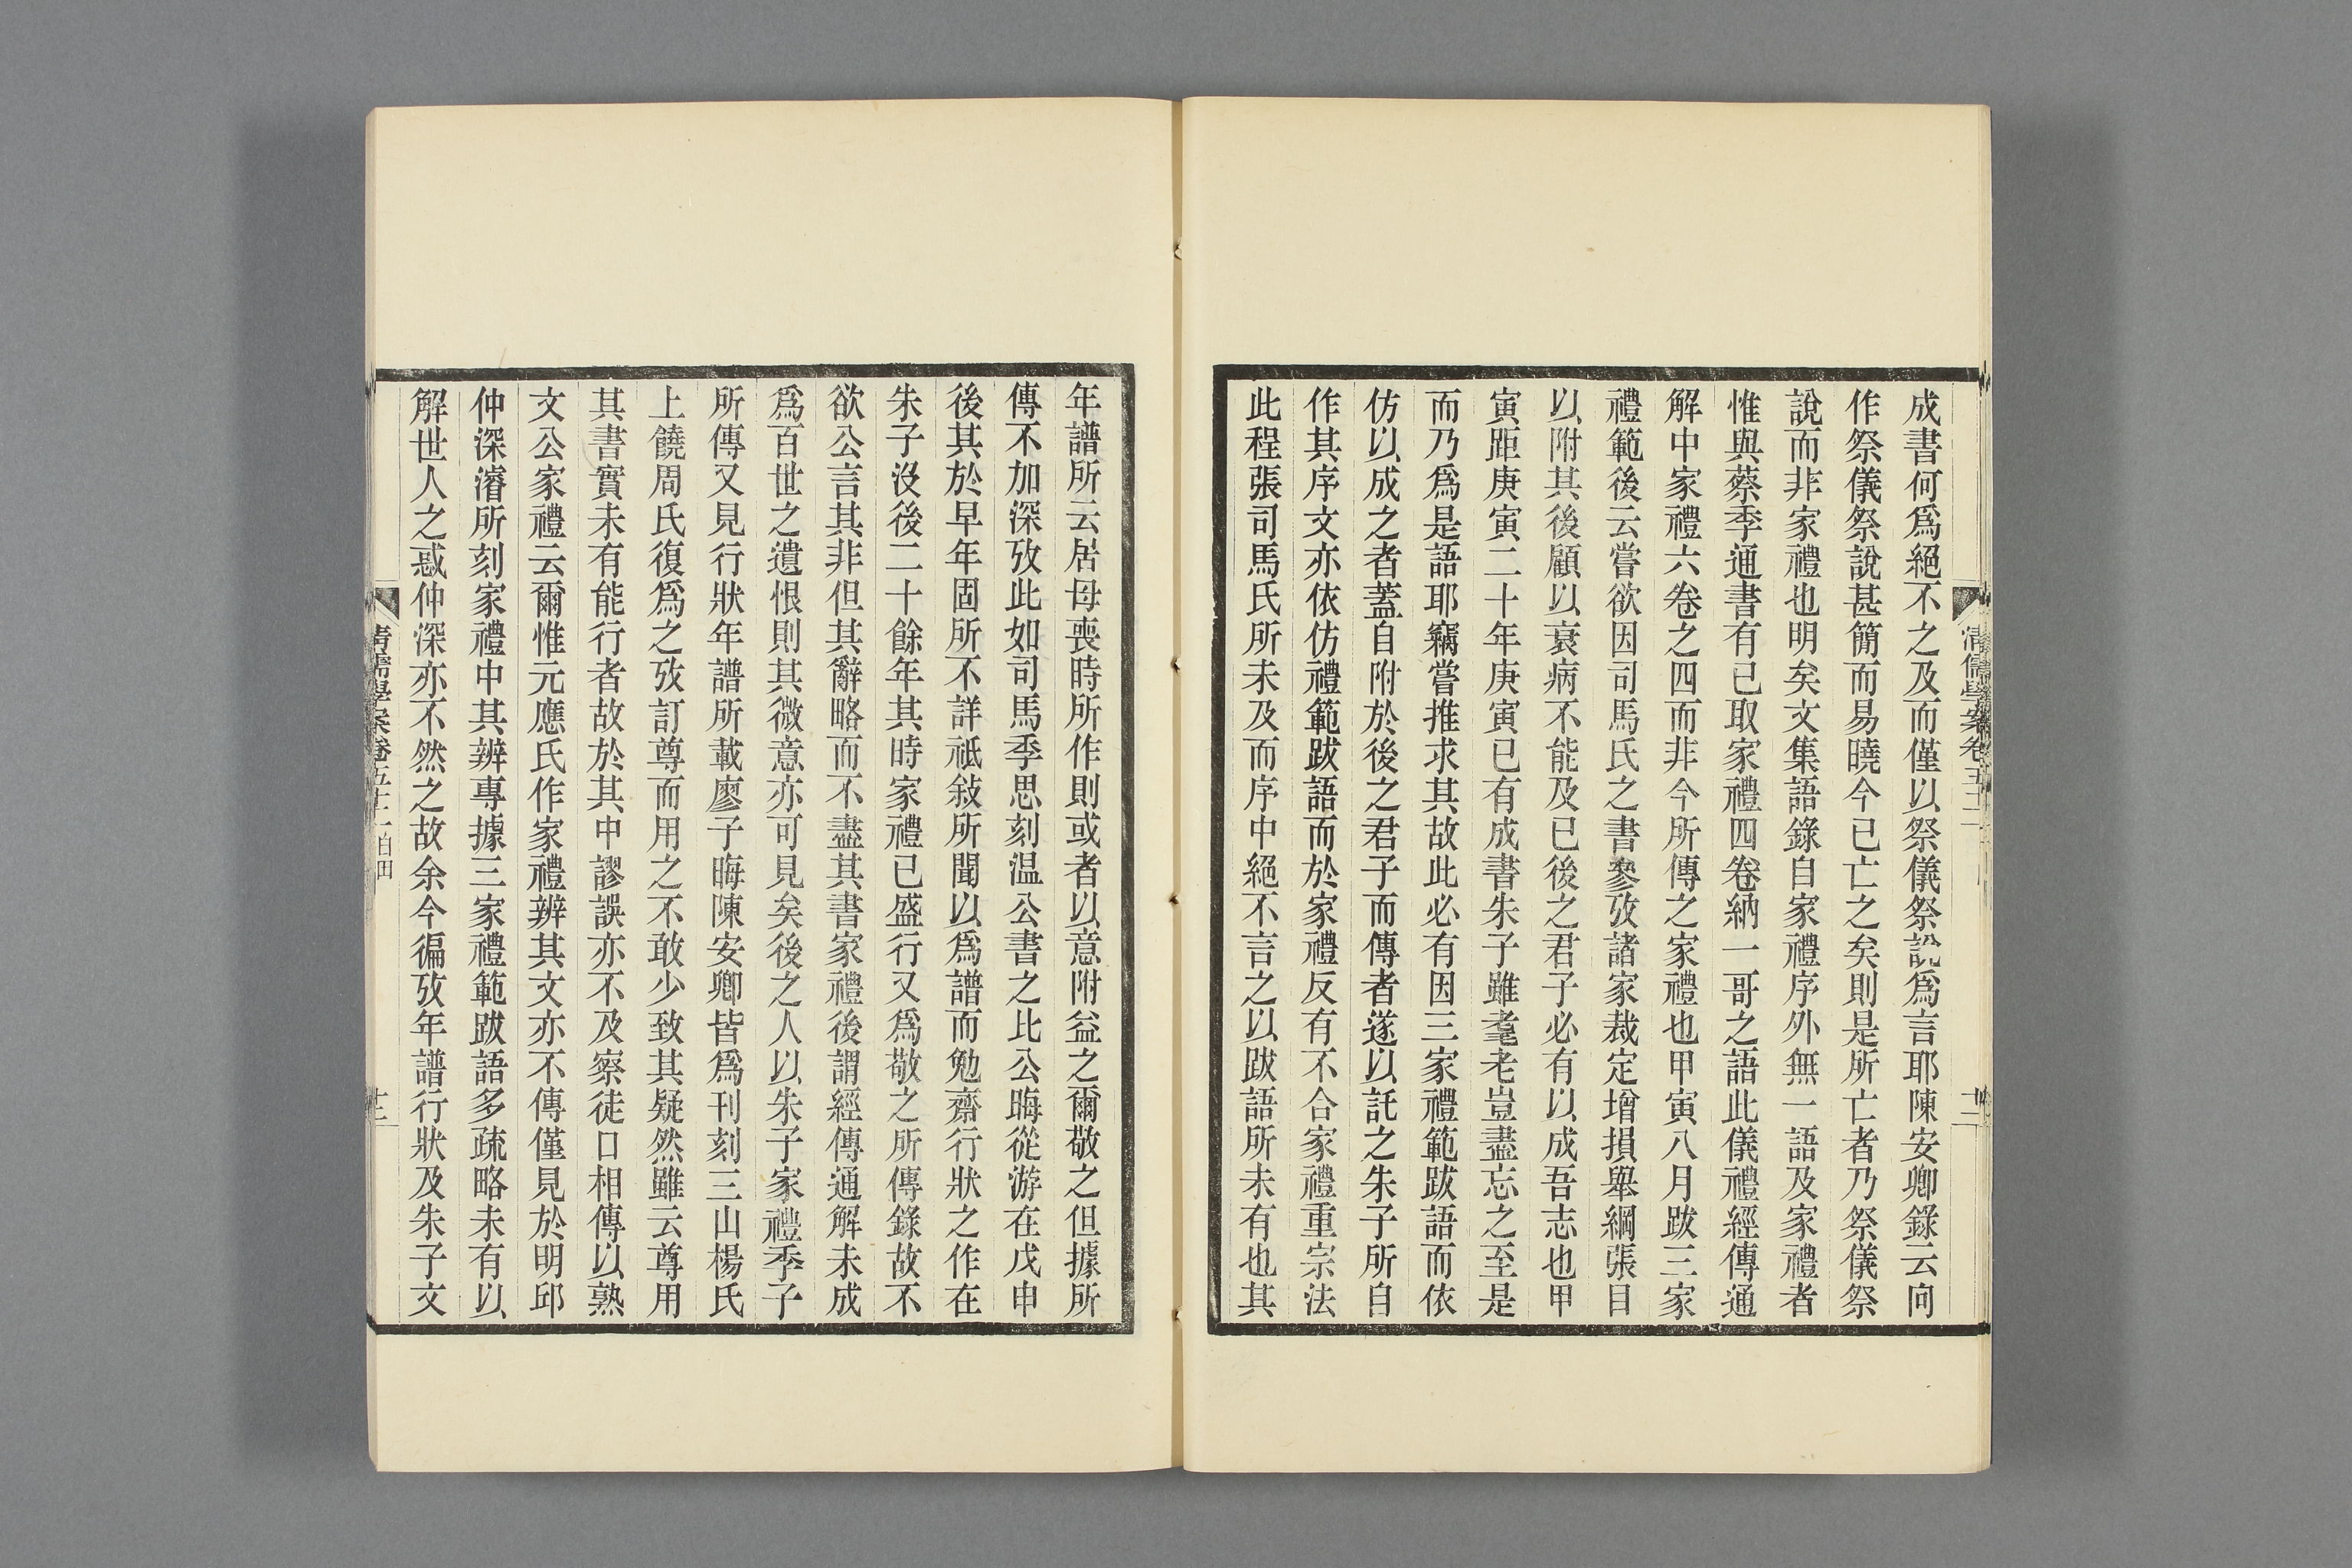 成書何爲絕不之及而僅以祭儀祭說爲言耶陳安卿錄云向
作祭儀祭說甚簡而易曉今已亡之矣則是所亡者乃祭儀祭
說而非家禮也明矣文集語錄自家禮序外無一語及家禮者
惟與蔡季通書有已取家禮四卷納一哥之語此儀禮經傳通
解中家禮六卷之四而非今所傳之家禮也甲寅八月跋三家
禮範後云嘗欲因司馬氏之書參攷諸家裁定增損舉綱張目
以附其後顧以衰病不能及已後之君子必有以成吾志也甲
寅距庚寅二十年庚寅已有成書朱子雖耄老豈盡忘之至是
而乃爲是語耶竊嘗推求其故此必有因三家禮範跋語而依
仿以成之者蓋自附於後之君子而傳者遂以託之朱子所自
作其序文亦依仿禮範跋語而於家禮反有不合家禮重宗法
此程張司馬氏所未及而序中絕不言之以跋語所未有也其
年譜所云居母喪時所作則或者以意附益之爾敬之但據所
傳不加深攷此如司馬季思刻温公書之比公晦從游在戊申
後其於早年固所不詳祗敍所聞以爲譜而勉齋行狀之作在
朱子沒後二十餘年其時家禮已盛行又爲敬之所傳錄故不
欲公言其非但其辭略而不盡其書家禮後謂經傳通解未成
爲百世之遺恨則其微意亦可見矣後之人以朱子家禮季子
所傳又見行狀年譜所載廖子晦陳安卿皆爲刊刻三山楊氏
上饒周氏復爲之攷訂尊而用之不敢少致其疑然雖云尊用
其書實未有能行者故於其中謬誤亦不及察徒口相傳以熟
文公家禮云爾惟元應氏作家禮辨其文亦不傳僅見於明邱
仲深濬所刻家禮中其辨專據三家禮範跋語多疏略未有以
解世人之惑仲深亦不然之故余今徧攷年譜行狀及朱子文
清儒學案卷五十二 白田
十三